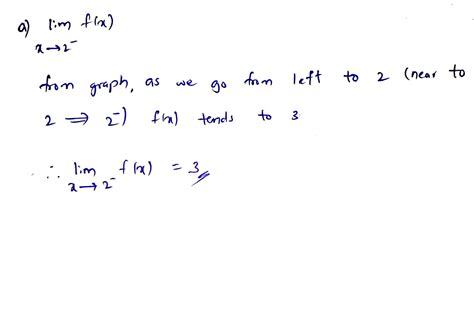 a) lim f(x)
x→2⁻
from graph, as we go from left to 2 (near to
2 ⟹ 2⁻) f(x) tends to 3
∴ lim f(x) = 3
x→2⁻